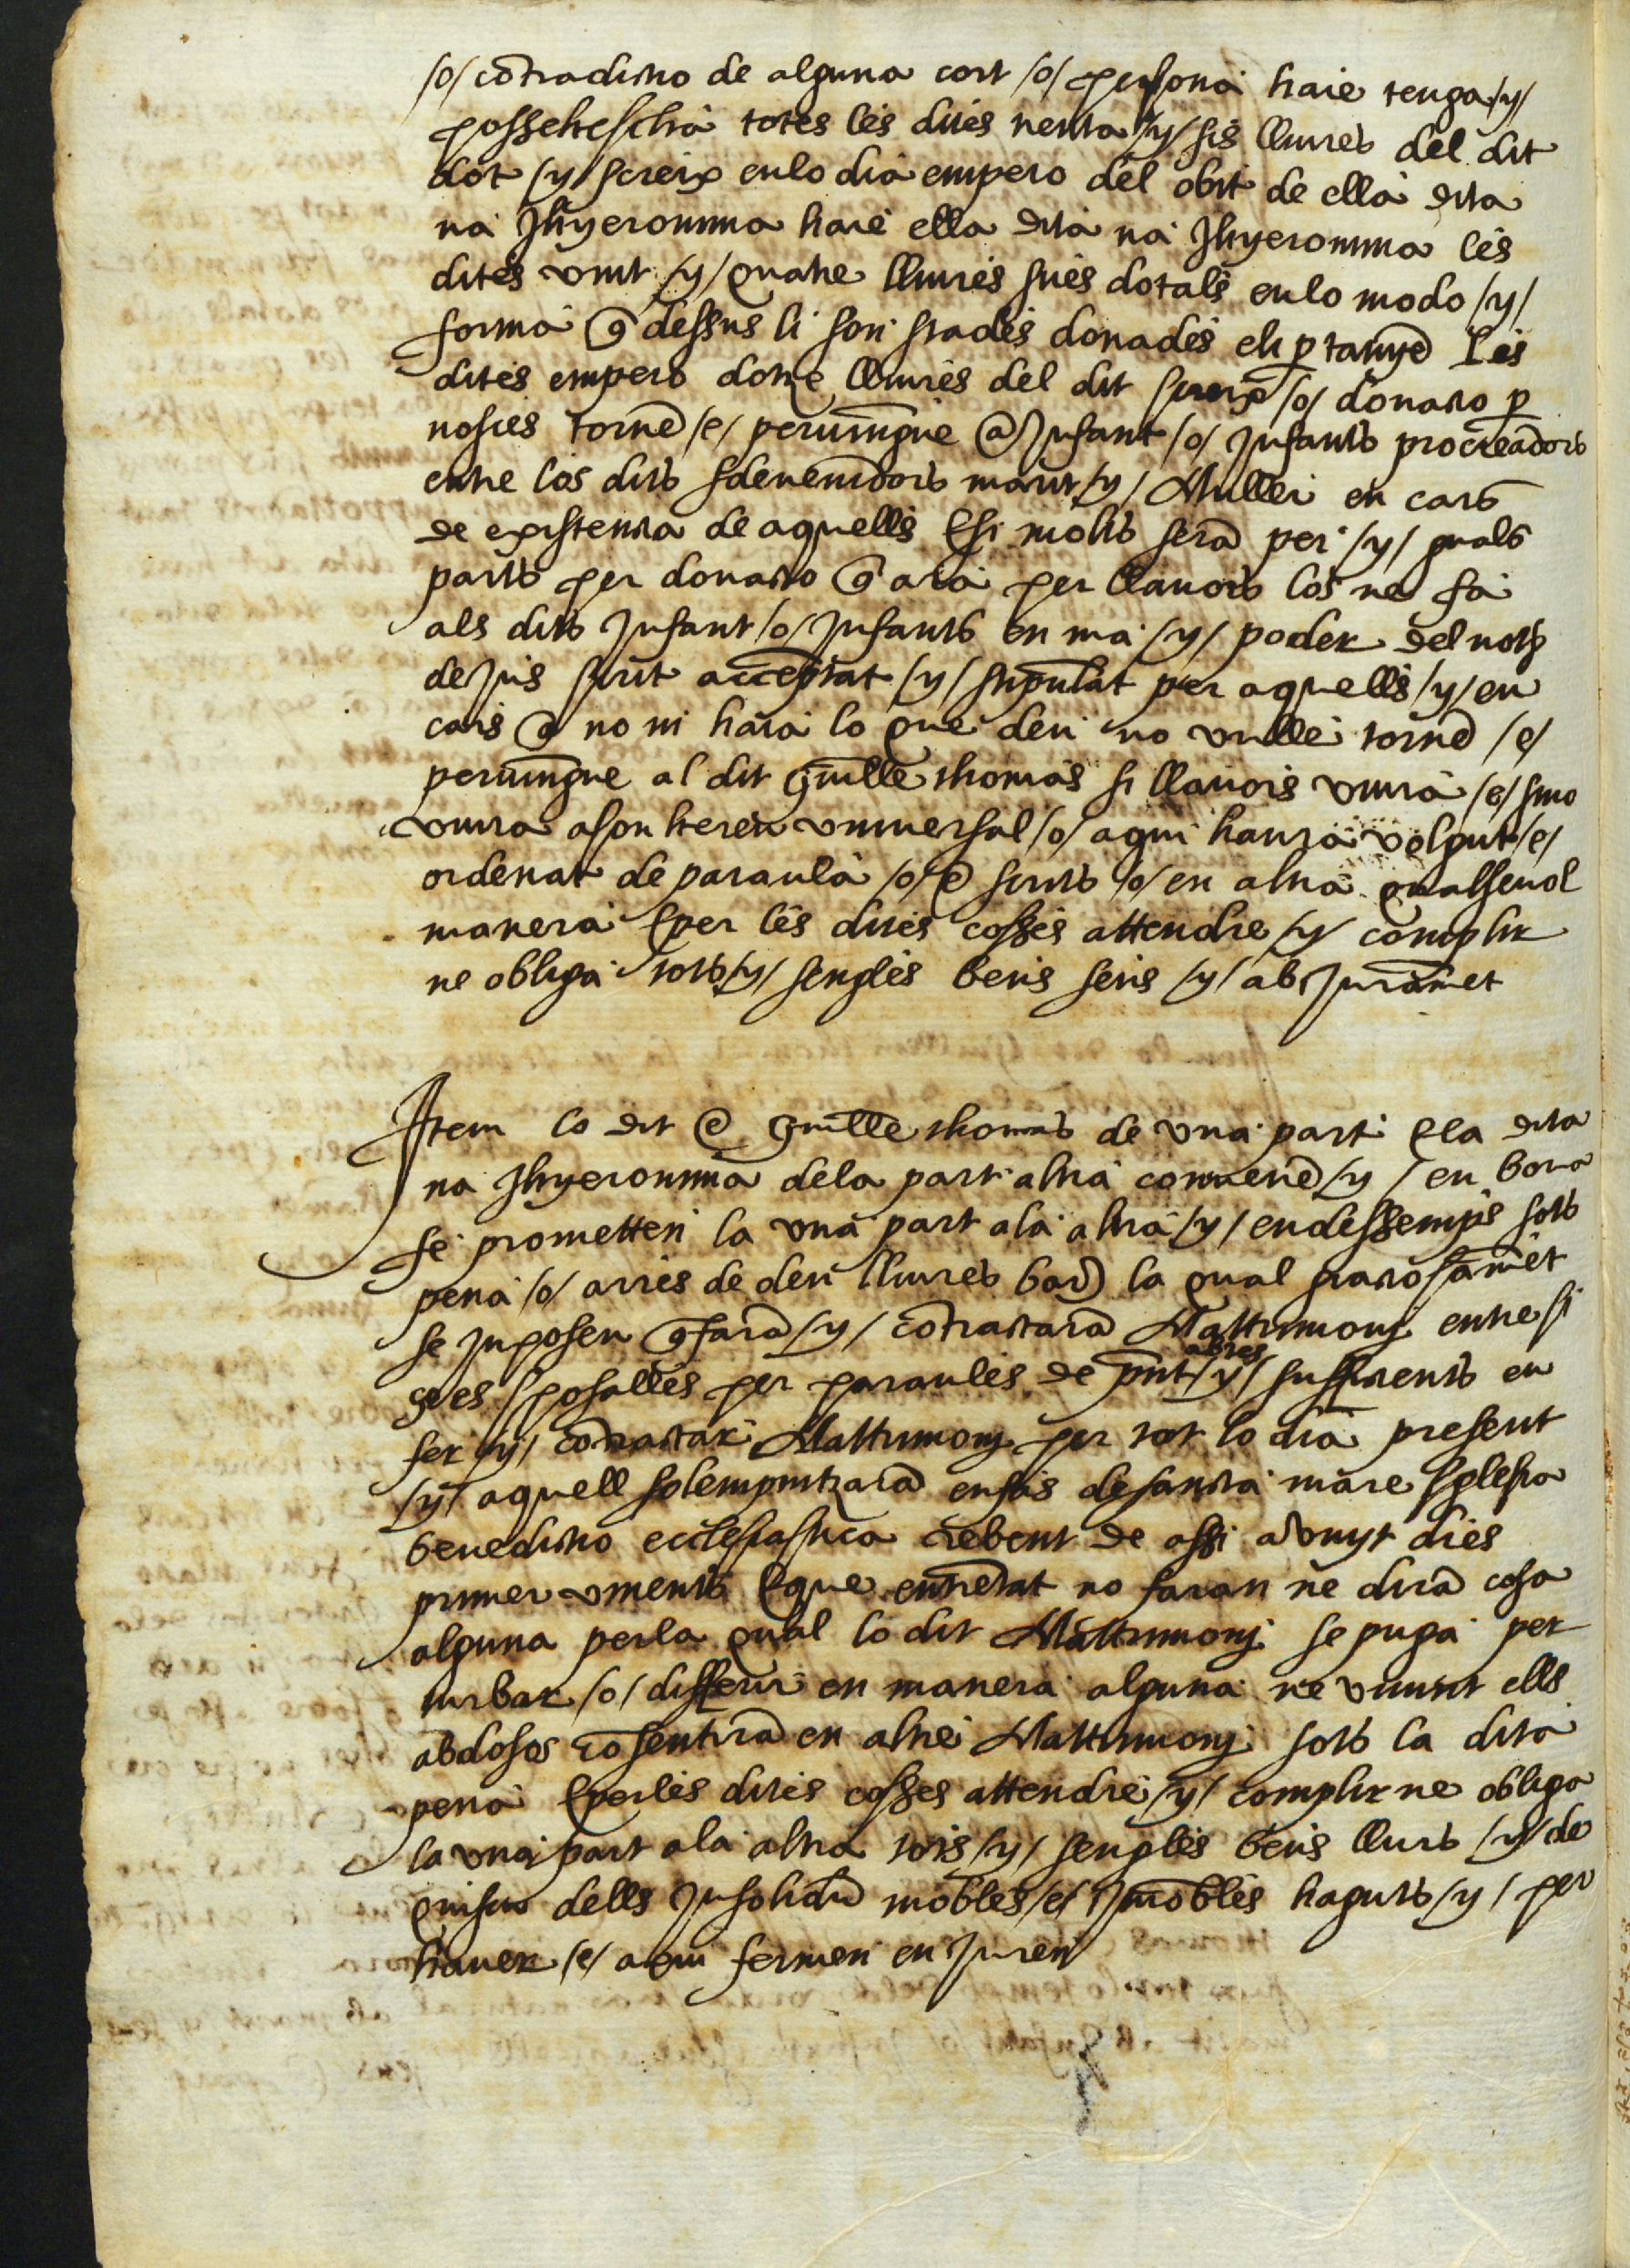 /o/ cōtradictio de alguna cort /o/ persona haie tenga /y/
possehescha totes les dites trenta /y/ sis lliures del dit
dot /y/ screix en lo dia empero del obit de ella dita
na Jhyeronima haie ella dita na Jhyeronima les
dites vint /y/ quatre lliures sues dotals en lo modo /y/
forma q̄ dessus li son stades donades e li ꝑtanyē Les
dites empero dotze lliures del dit screix /o/ donatio ꝑ
nosces tornē /e/ pervīngue a Infant /o/ Infants procreadors
entre los dits sdevenidors marit /y/ Muller en cars
de existentia de aquells E si molts serā per /y/ guals
parts per donatio q̄ ara per llavors los ne fa
als dits Infant /o/ Infants en ma /y/ poder del not̄
dejus scrit acceptat /y/ stipulat per aquells /y/ en
cars q̄ no ni hara lo que deu no vulle tornē /e/
pervīngue al dit Guillē thomas si llavors viura /e/ sino
viura a son hereu universal /o/ a qui haura volgut /e/
ordenat de paraula /o/ ē scrits /o/ en altra qualsevol
manera E per les dites cosses attendre /y/ complir
ne obliga tots /y/ sengles bens seus /y/ ab Juramēt
Item lo dit ē Guillē thomas de una part E la dita
na Jhyeronima de la part altra convenē /y/ en bona
fe prometten la una part a la altra /y/ endessemps sots
pena /o/ arres de deu lliures barȝ la qual gratiosamēt
se Inposen q̄ farā /y/ cōtractarā Mattrimonj entre si
ço es sposalles per paraules de pn̄t /y/ abtes sufficients en
fer /y/ cōtractar Mattrimonj per tot lo dia present
/y/ aquell solempnitzarā en fas de santa mare sglesia
benedictio ecclesiastica rebent de assi a vuyt dies
primer vinents E que entretāt no faran ne dirā cosa
alguna per la qual lo dit Mattrimonj se puga per
turbar /o/ differir en manera alguna ne vivint ells
abdosos cōsentirā en altre Mattrimonj sots la dita
pena E per les dites cosses attendre /y/ complir ne obliga
la una part a la altra tots /y/ sengles bens llurs /y/ de
quiscu dells Insolidū mobles /e/ Inmobles haguts /y/ per
haver /e/ a qui fermen en Juren